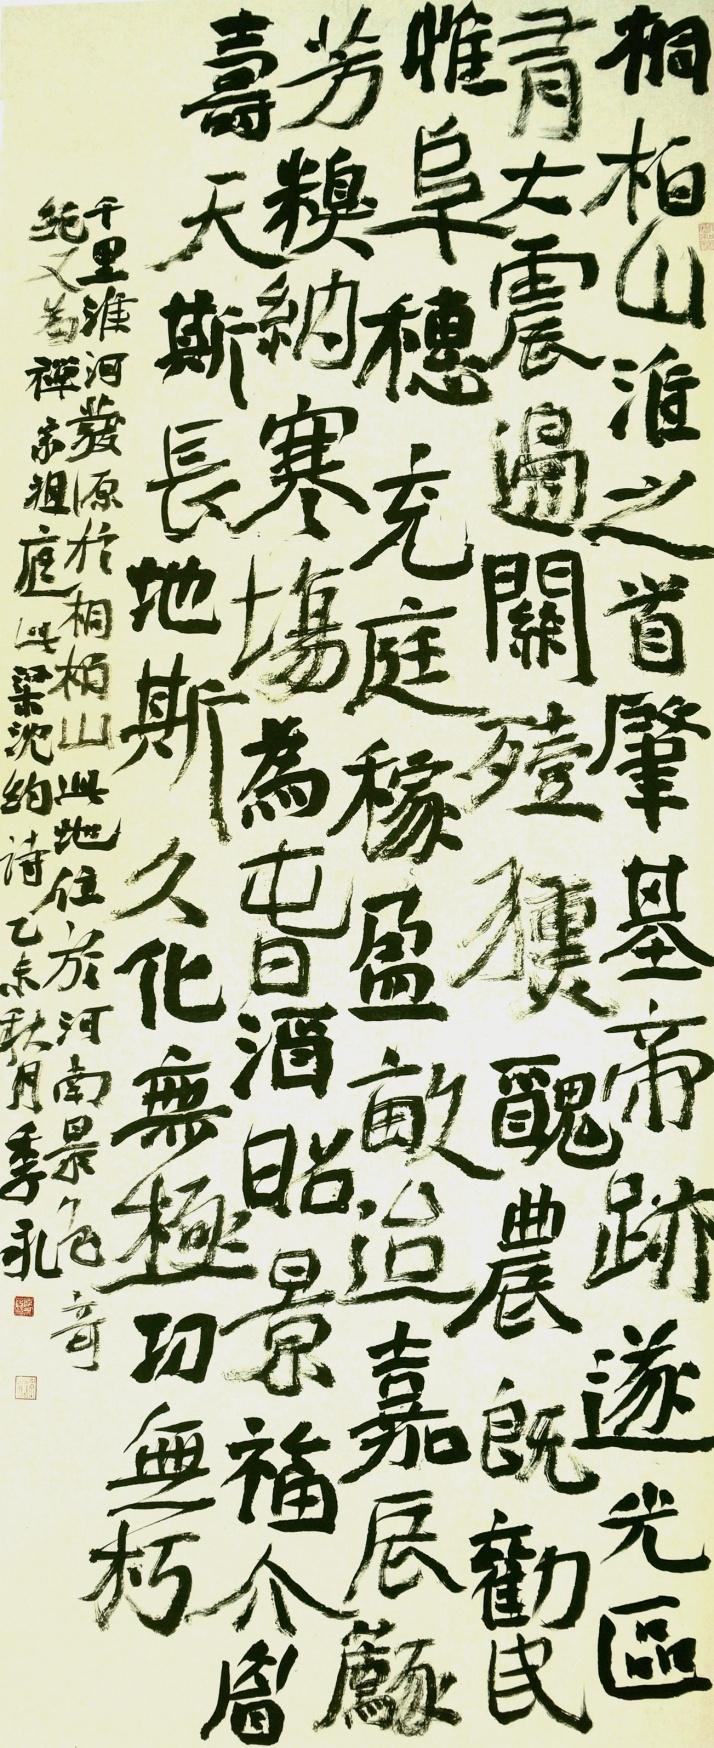 桐柏山淮之首肇基帝跡遂光區
有大震過關殪獯醜農既勸民
惟阜穗充庭稼盈畝迨嘉辰蘇
芳糗納寒場為旨酒昭景福介眉
壽天斯長地斯久化無極功無朽
千里淮河發源於桐柏山此地位於河南景色奇
純又為禪宗祖庭此梁沈約詩乙未秋月季孔